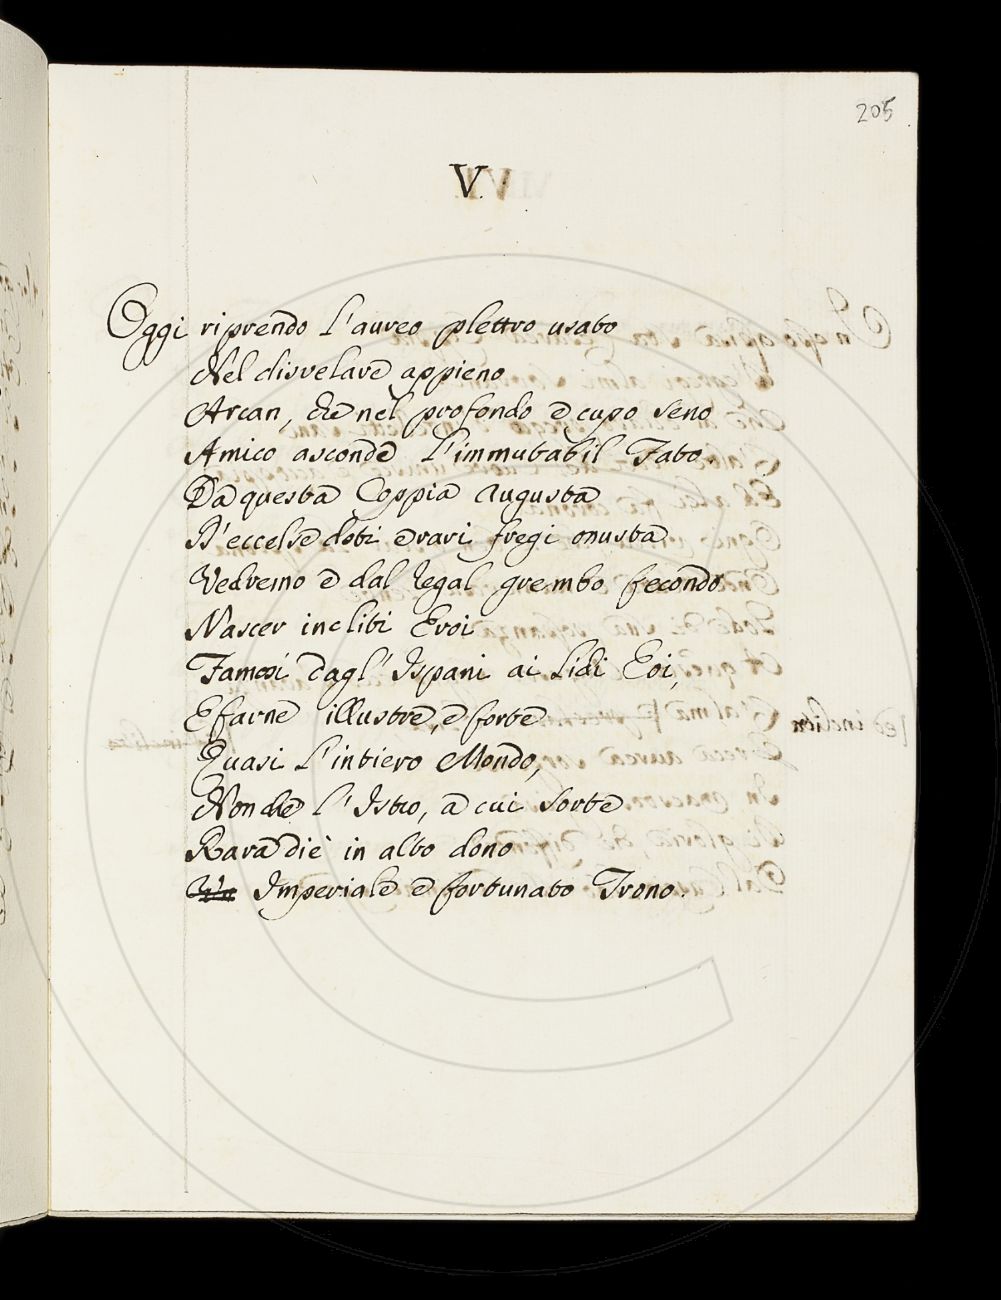 205
V.
Oggi riprendo l'aureo plettro usato
Nel disvelare appieno
Arcan, che nel profondo e cupo seno
Amico asconde l'immutabil Fato.
Da questa Coppia augusta
D'eccelse doti e rari fregi onusta
Vedremo e dal regal grembo fecondo
Nascer incliti Eroi
Famosi dagl'Ispani ai Lidi Eoi,
E farne illustre, e forte
Quasi l'intiero Mondo,
Non che l'Istro, a cui Sorte
Rara diè in alto dono
Imperiale e fortunato Trono.